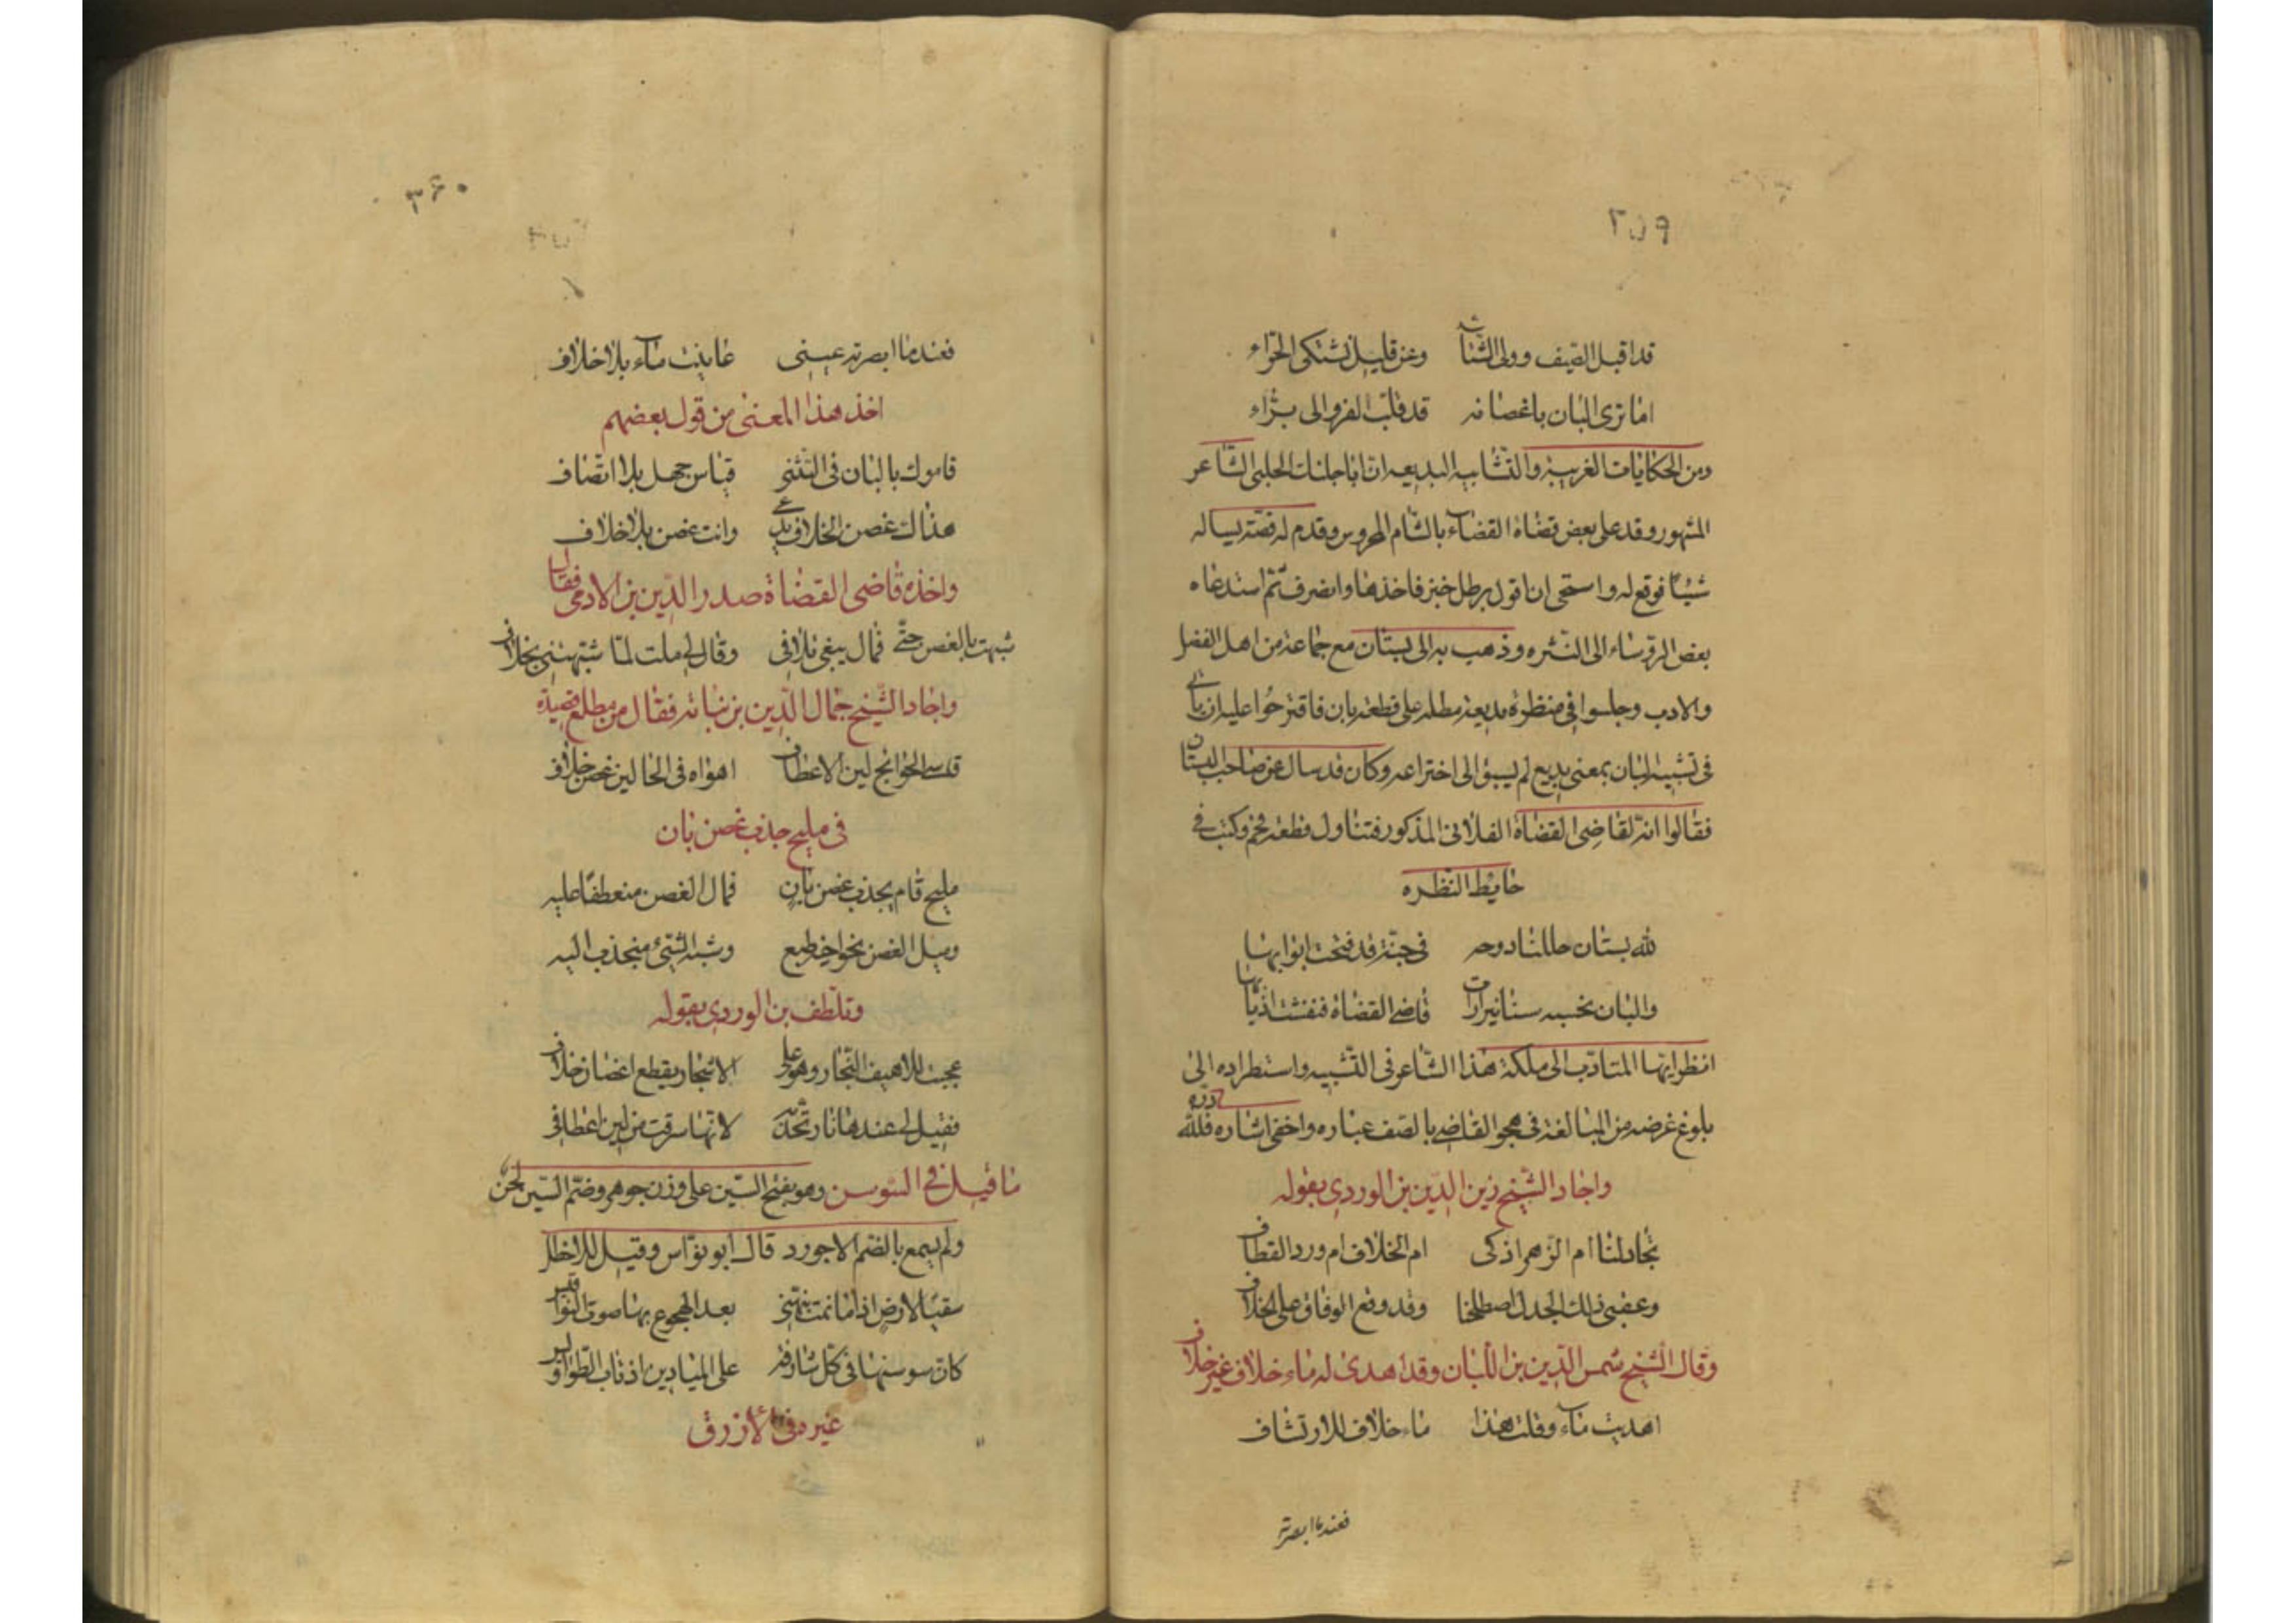 ٣٥٩
قد اقبل الصّيف وولى الشّتا وعن قليل نشتكى الحرّاء
اما ترى البان باغصانه قد قلّب الفرو الى برّاء
ومن الحكايات الغريبة والتّشابيه البديعه انّ ابا جانات الحلبى الشّاعر
المشهور وفد على بعض قضاة القضاء بالشّام المحروس وقدم له قصّة يساله
شيئًا فوقع له واستحى ان اقول برطل خبز فاخذها وانصرف ثمّ استدعاه
بعض الرؤساء الى النّشره وذهب به الى بستان مع جماعة من اهل الفضل
والادب وجلسوا فى منظرة بديعة مطله على قطعة بان فاقترحوا عليه ان ياتى
فى تشبيه البان بمعنى بديع لم يسبق الى اختراعه وكان قد سال عن صاحب البستان
فقالوا انّه لقاضى القضاة الفلانى المذكور فتناول قطعة فحم وكتب فى
حايط النّظره
لله بستان حللنا دوحه فى جنّة قد فتحت ابوابها
والبان تحسبه سنانيرا رات قاضى القضاة فنفشت اذنابها
انظر ايها المتادّب الى ملكة هذا الشّاعر فى التّشبيه واستطراده الى
بلوغ غرضه من المبالغة فى هجو القاضى بالصف عباره واخفى اشاره فللّه درّه
واجاد الشّيخ زين الدّين بن الوردى بقوله
تجادلنا أم الزّهر اذكى ام الخلاف ام ورد القطاف
وعقبى ذلك الجدل اصطلحنا وقد وقع الوفاق على الخلاف
وقال الشّيخ شمس الدّين بن اللّبان وقد اهدى له ماء خلاف غير خلاف
اهديت ماء وقلت هذا ماء خلاف للارتشاف
فعندما ابصرته
٣۶٠
فعندما ابصرته عينى عاينت ماء بلا خلاف
اخذ هذا المعنى من قول بعضهم
قاسوك بالبان فى التّثنى قياس جهل بلا اتّصاف
هذاك غصن الخلاف يدعى وانت غصن بلا خلاف
واخذه قاضى القضاة صدر الدّين بن الادمى فقال
شبهت بالغصن حتّى فمال يبغى تلافى وقال لى ملت لمّا شبّهتنى بخلاف
واجاد الشّيخ جمال الدّين بن نباته فقال من مطلع قصيدة
قاسى الجوانح لين الاعطاف اهواه فى الحالين غصن خلاف
فى مليح جذب غصن بان
مليح قام يجذب غصن بان فمال الغصن منعطفًا عليه
وميل الغصن نحو اخيه طبع وشبه الشّيئ منجذب اليه
وتلطّف بن الوردى بقوله
عجبت للاهيف النّجار وهو على الاشجار يقطع اغصان خلاف
فقيل لى عندها نار تحدّ لانّها سرقت من لين اعطافى
ما قيل فى السّوسن وهو بفتح السّين على وزن جوهر وضمّ السّين لحن
ولم يسمع بالضمّ الا جورد قال ابو نوّاس وقيل للاخطل
سقيًا لارض اذا ما نمت نبّهنى بعد الهجوع بها صوت النّواقير
كانّ سوسنها فى كلّ شارقة على الميادين اذناب الطّواوير
غيره فى الأزرق